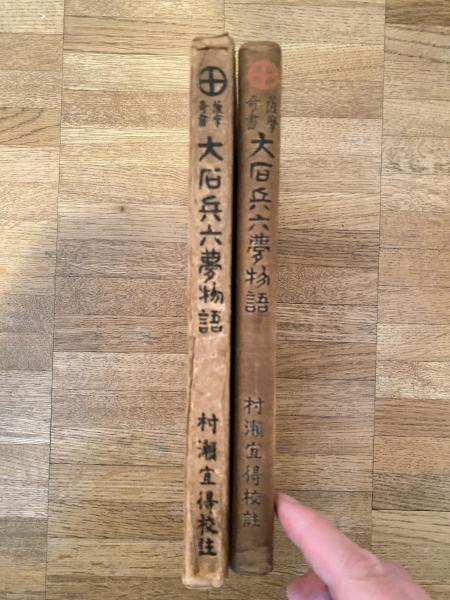 薩摩
奇書
大石兵六夢物語
村瀬宜得校註
薩摩
奇書
大石兵六夢物語
村瀬宜得校註